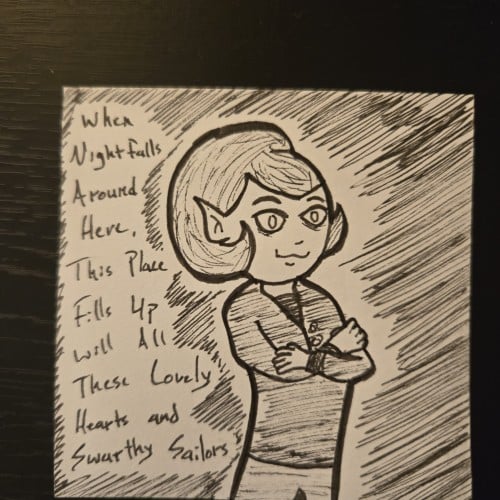 When
Nightfalls
Around
Here,
This Place
Fills Up
Will All
These Lovely
Hearts and
Swarthy Sailors